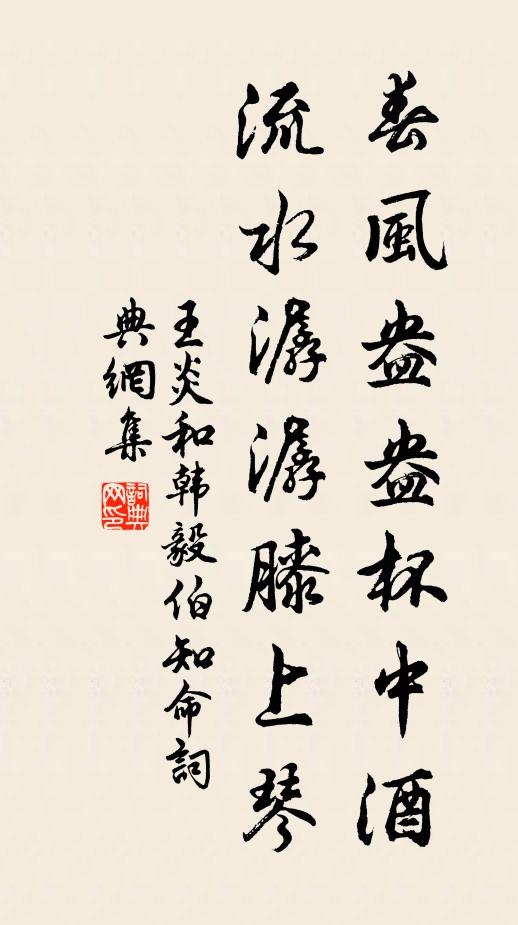 春風盎盎杯中酒
流水潺潺膝上琴
王炎和韩毅伯知命詞
典網集
詞典网印